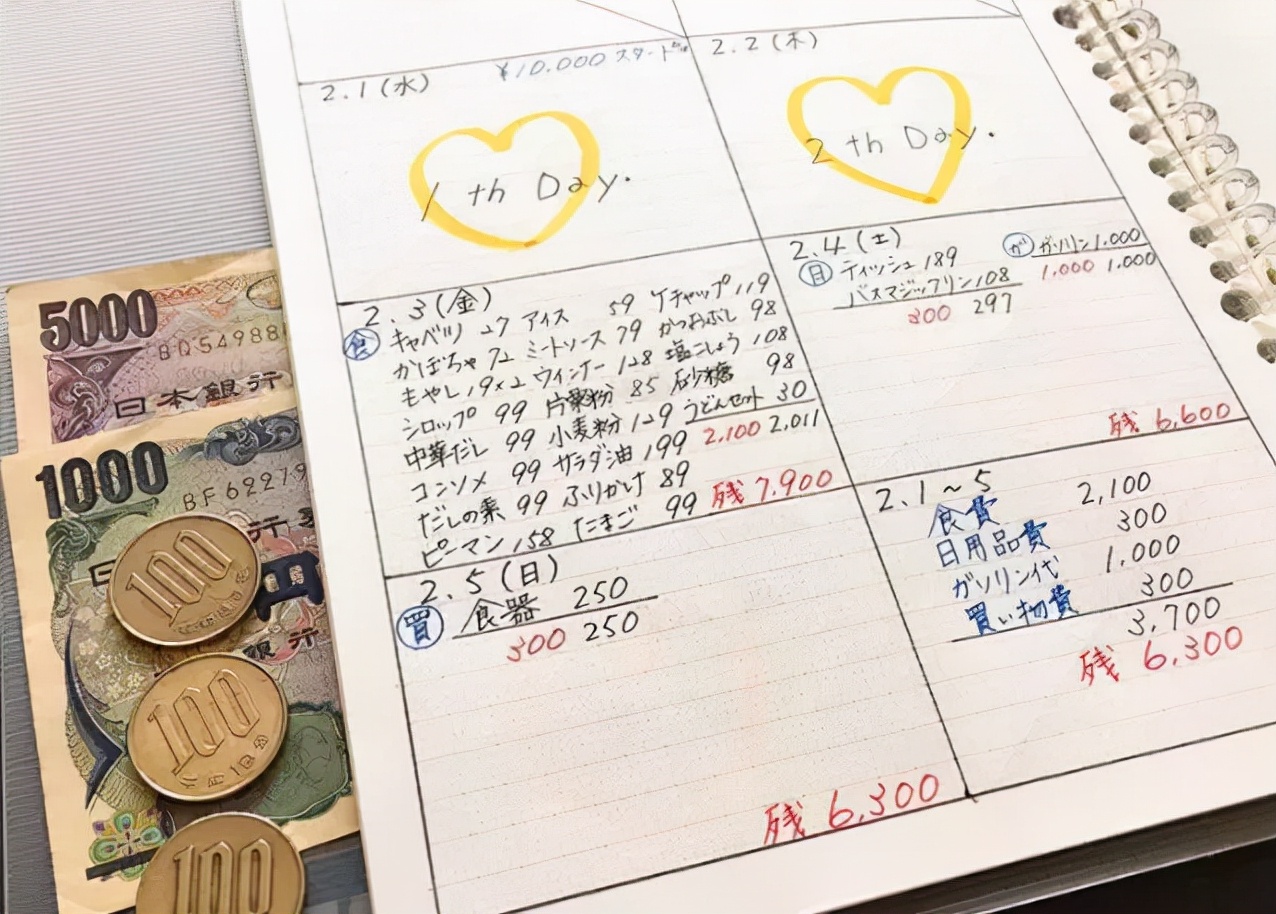 2.1(水)
¥10,000 スタート
1 th Day.
2.2(木)
2 th Day.
2.3(金)
食 キャベツ 27 アイス 59 ケチャップ 119
かぼちゃ 72 ミートソース 79 かつおぶし 98
もやし 19×2 ウィンナー 128 塩こしょう 108
シロップ 99 片栗粉 85 砂糖 98
中華だし 99 小麦粉 129 うどんセット 30
コンソメ 99 サラダ油 199 2,100 2,011
だしの素 99 ふりかけ 89
ピーマン 158 たまご 99 残 7,900
2.4(土)
日 ティッシュ 189
バスマジックリン 108
300 297
ガ ガソリン 1,000
1,000 1,000
残 6,600
2.5(日)
買 食器 250
300 250
残 6,300
2.1~5
食費 2,100
日用品費 300
ガソリン代 1,000
買い物費 300
3,700
残 6,300
5000
BQ54988
日本銀行
1000
BF62279
銀行
円
100
100
100